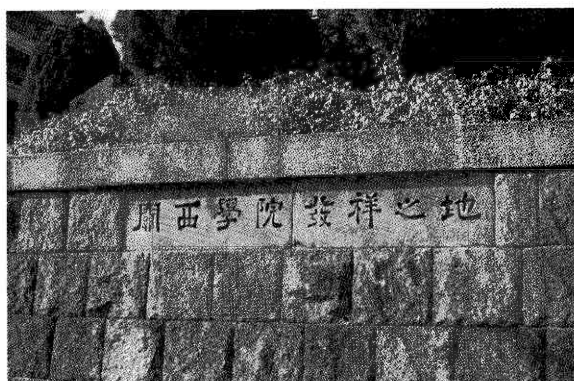 關西學院發祥之地